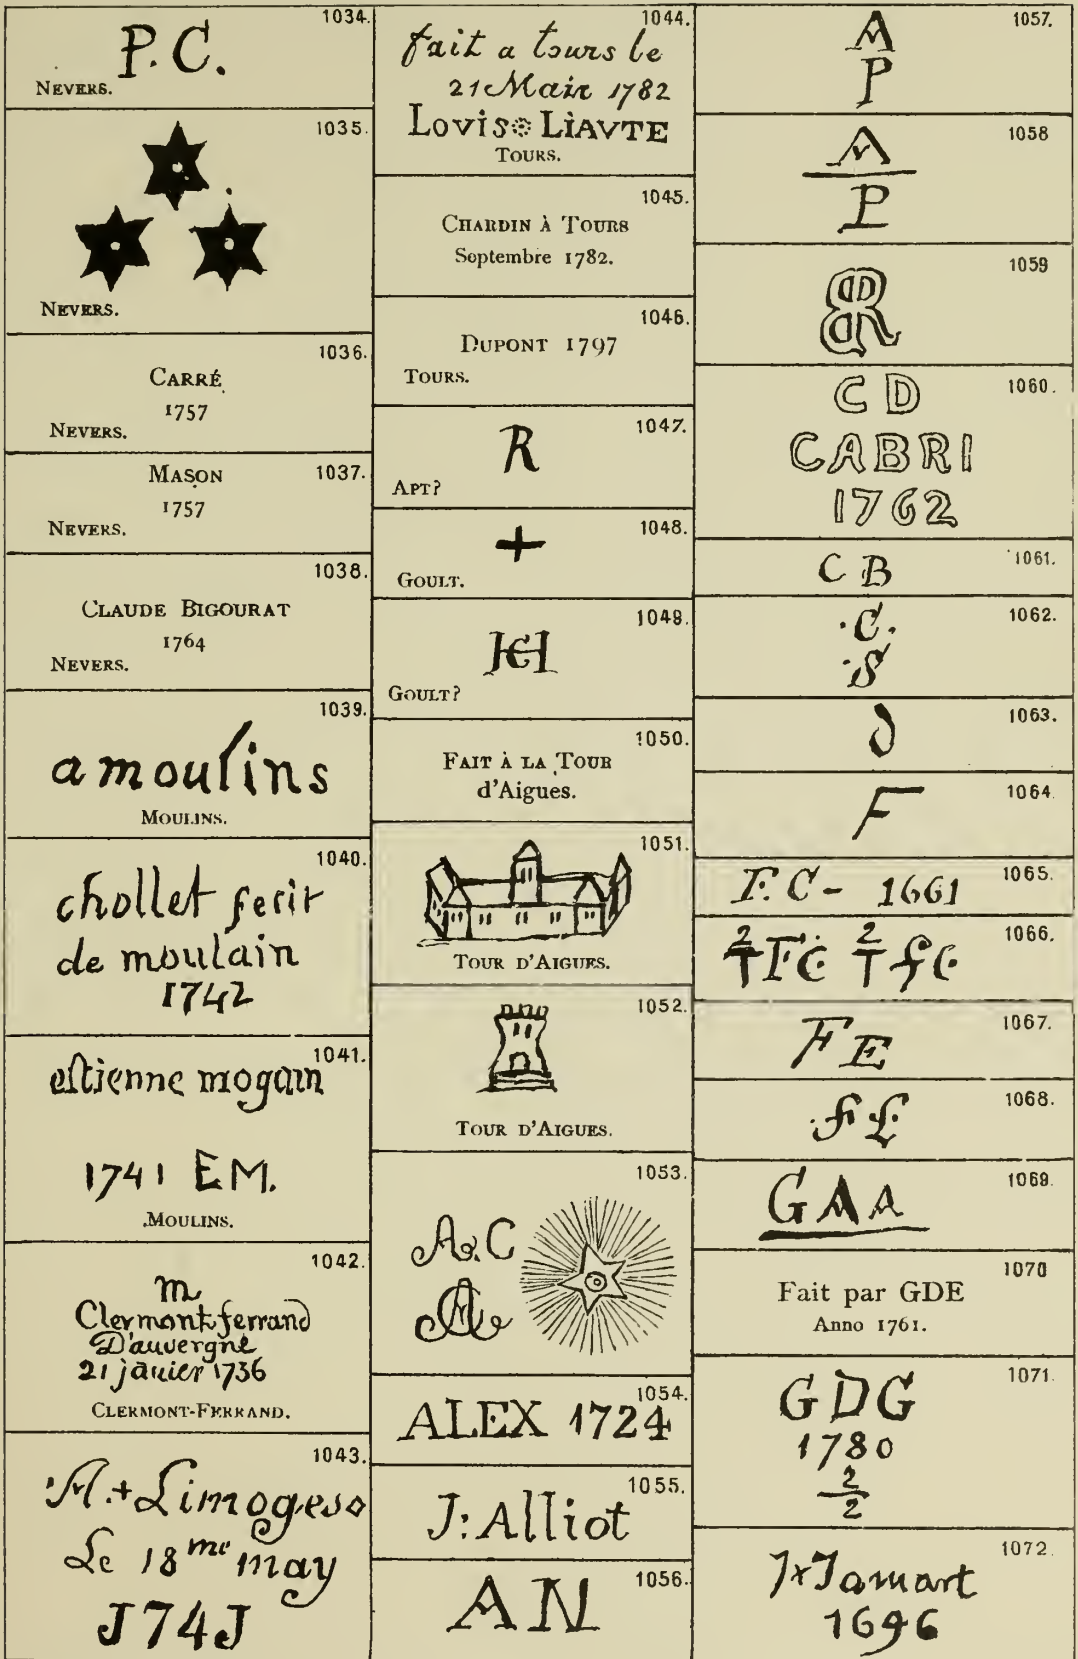 1034.
P. C.
NEVERS.
1035.
NEVERS.
1036.
CARRÉ
1757
NEVERS.
1037.
MASON
1757
NEVERS.
1038.
CLAUDE BIGOURAT
1764
NEVERS.
1039.
a moulins
MOULINS.
1040.
chollet fecit
de moulain
1742
1041.
estienne mogain
1741 EM.
MOULINS.
1042.
m
Clermont ferrand
D'auvergne
21 janier 1736
CLERMONT-FERRAND.
1043.
A.+Limoges
Le 18me may
J74J
1044.
fait a tours le
21 Mair 1782
LOVIS LIAVTE
TOURS.
1045.
CHARDIN À TOURS
Septembre 1782.
1046.
DUPONT 1797
TOURS.
1047.
R
APT?
1048.
+
GOULT.
1049.
GOULT?
1050.
FAIT À LA TOUR
d'Aigues.
1051.
TOUR D'AIGUES.
1052.
TOUR D'AIGUES.
1053.
A.C
1054.
ALEX 1724
1055.
J:Alliot
1056.
AN
1057.
A
P
1058
A
P
1059
1060.
CD
CABRI
1762
1061.
C B
1062.
.C.
.S
1063.
1064.
F
1065.
F.C- 1661
1066.
2
T FC 2
T fc
1067.
FE
1068.
.F L
1069.
GAA
1070
Fait par GDE
Anno 1761.
1071.
GDG
1780
2
2
1072.
J×Jamart
1696